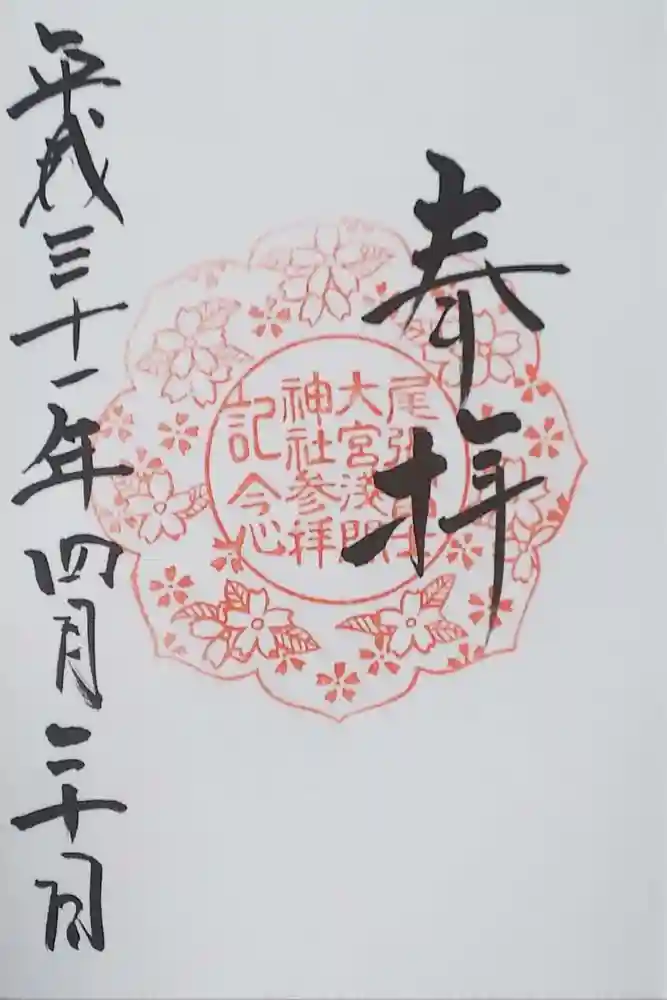 奉拝
尾張冨士
大宮淺間
神社参拝
記念
平成三十一年四月二十日